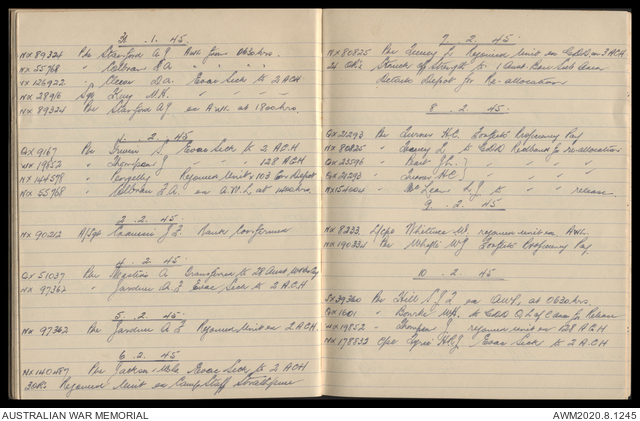 31 . 1 . 45
NX 89324 Pte Stanford A J AWL from 0630 hrs.
NX 55768 " " " "
VX 126922 " D.A. Evac Sick to 2 ACH
NX 28916 Sgt King M.H.
NX 89324 Pte Stanford A J ex AWL at 1800 hrs.
1 . 2 . 45
QX 9167 Pte Irwin S J Evac Sick to 2 ACH
WX 19852 " Thompson J " " " 128 ACH
NX 144578 " Rejoined Unit ex 103 Con Depot
NX 55768 " ex A.W.L at 1400 hrs.
2 . 2 . 45
NX 90212 A/Sgt J E Rank Confirmed
4 . 2 . 45
QX 51037 Pte Martin A Transferred to 28 Aust Works Coy
NX 97362 " Gardner A E Evac Sick to 2 ACH
5 . 2 . 45
NX 97362 Pte Gardner A E Rejoined Unit ex 2 ACH
6 . 2 . 45
NX 140487 Pte Jackson Evac Sick to 2 ACH
3 ORs Rejoined Unit ex Camp Staff Strathpine
7 . 2 . 45
NX 80825 Pte J. Rejoined Unit ex 2 ACH
24 ORs Struck off Strength to 1 Aust Base Sub Area
Details Depot for Re-allocation
8 . 2 . 45
QX 21293 Pte Turner H.C. Forfeits Proficiency Pay
NX 80825 " to for re-allocation
QX 23596 " Hart J.C. } " " "
QX 21293 " Turner H.C } " " "
NX 154004 " McLean to " " release.
9 . 2 . 45
NX 8233 L/Cpl Whittle rejoined unit ex AWL.
NX 190234 Pte W J Forfeits Proficiency Pay.
10 . 2 . 45
NX 39360 Pte Hill S J T ex AWL, at 0630 hrs.
QX 1601 " Bourke to for Release
WX 19852 " Thompson J rejoined unit ex 128 ACH
NX 178832 Cpl H R J Evac Sick to 2 ACH
AUSTRALIAN WAR MEMORIAL
AWM2020.8.1245